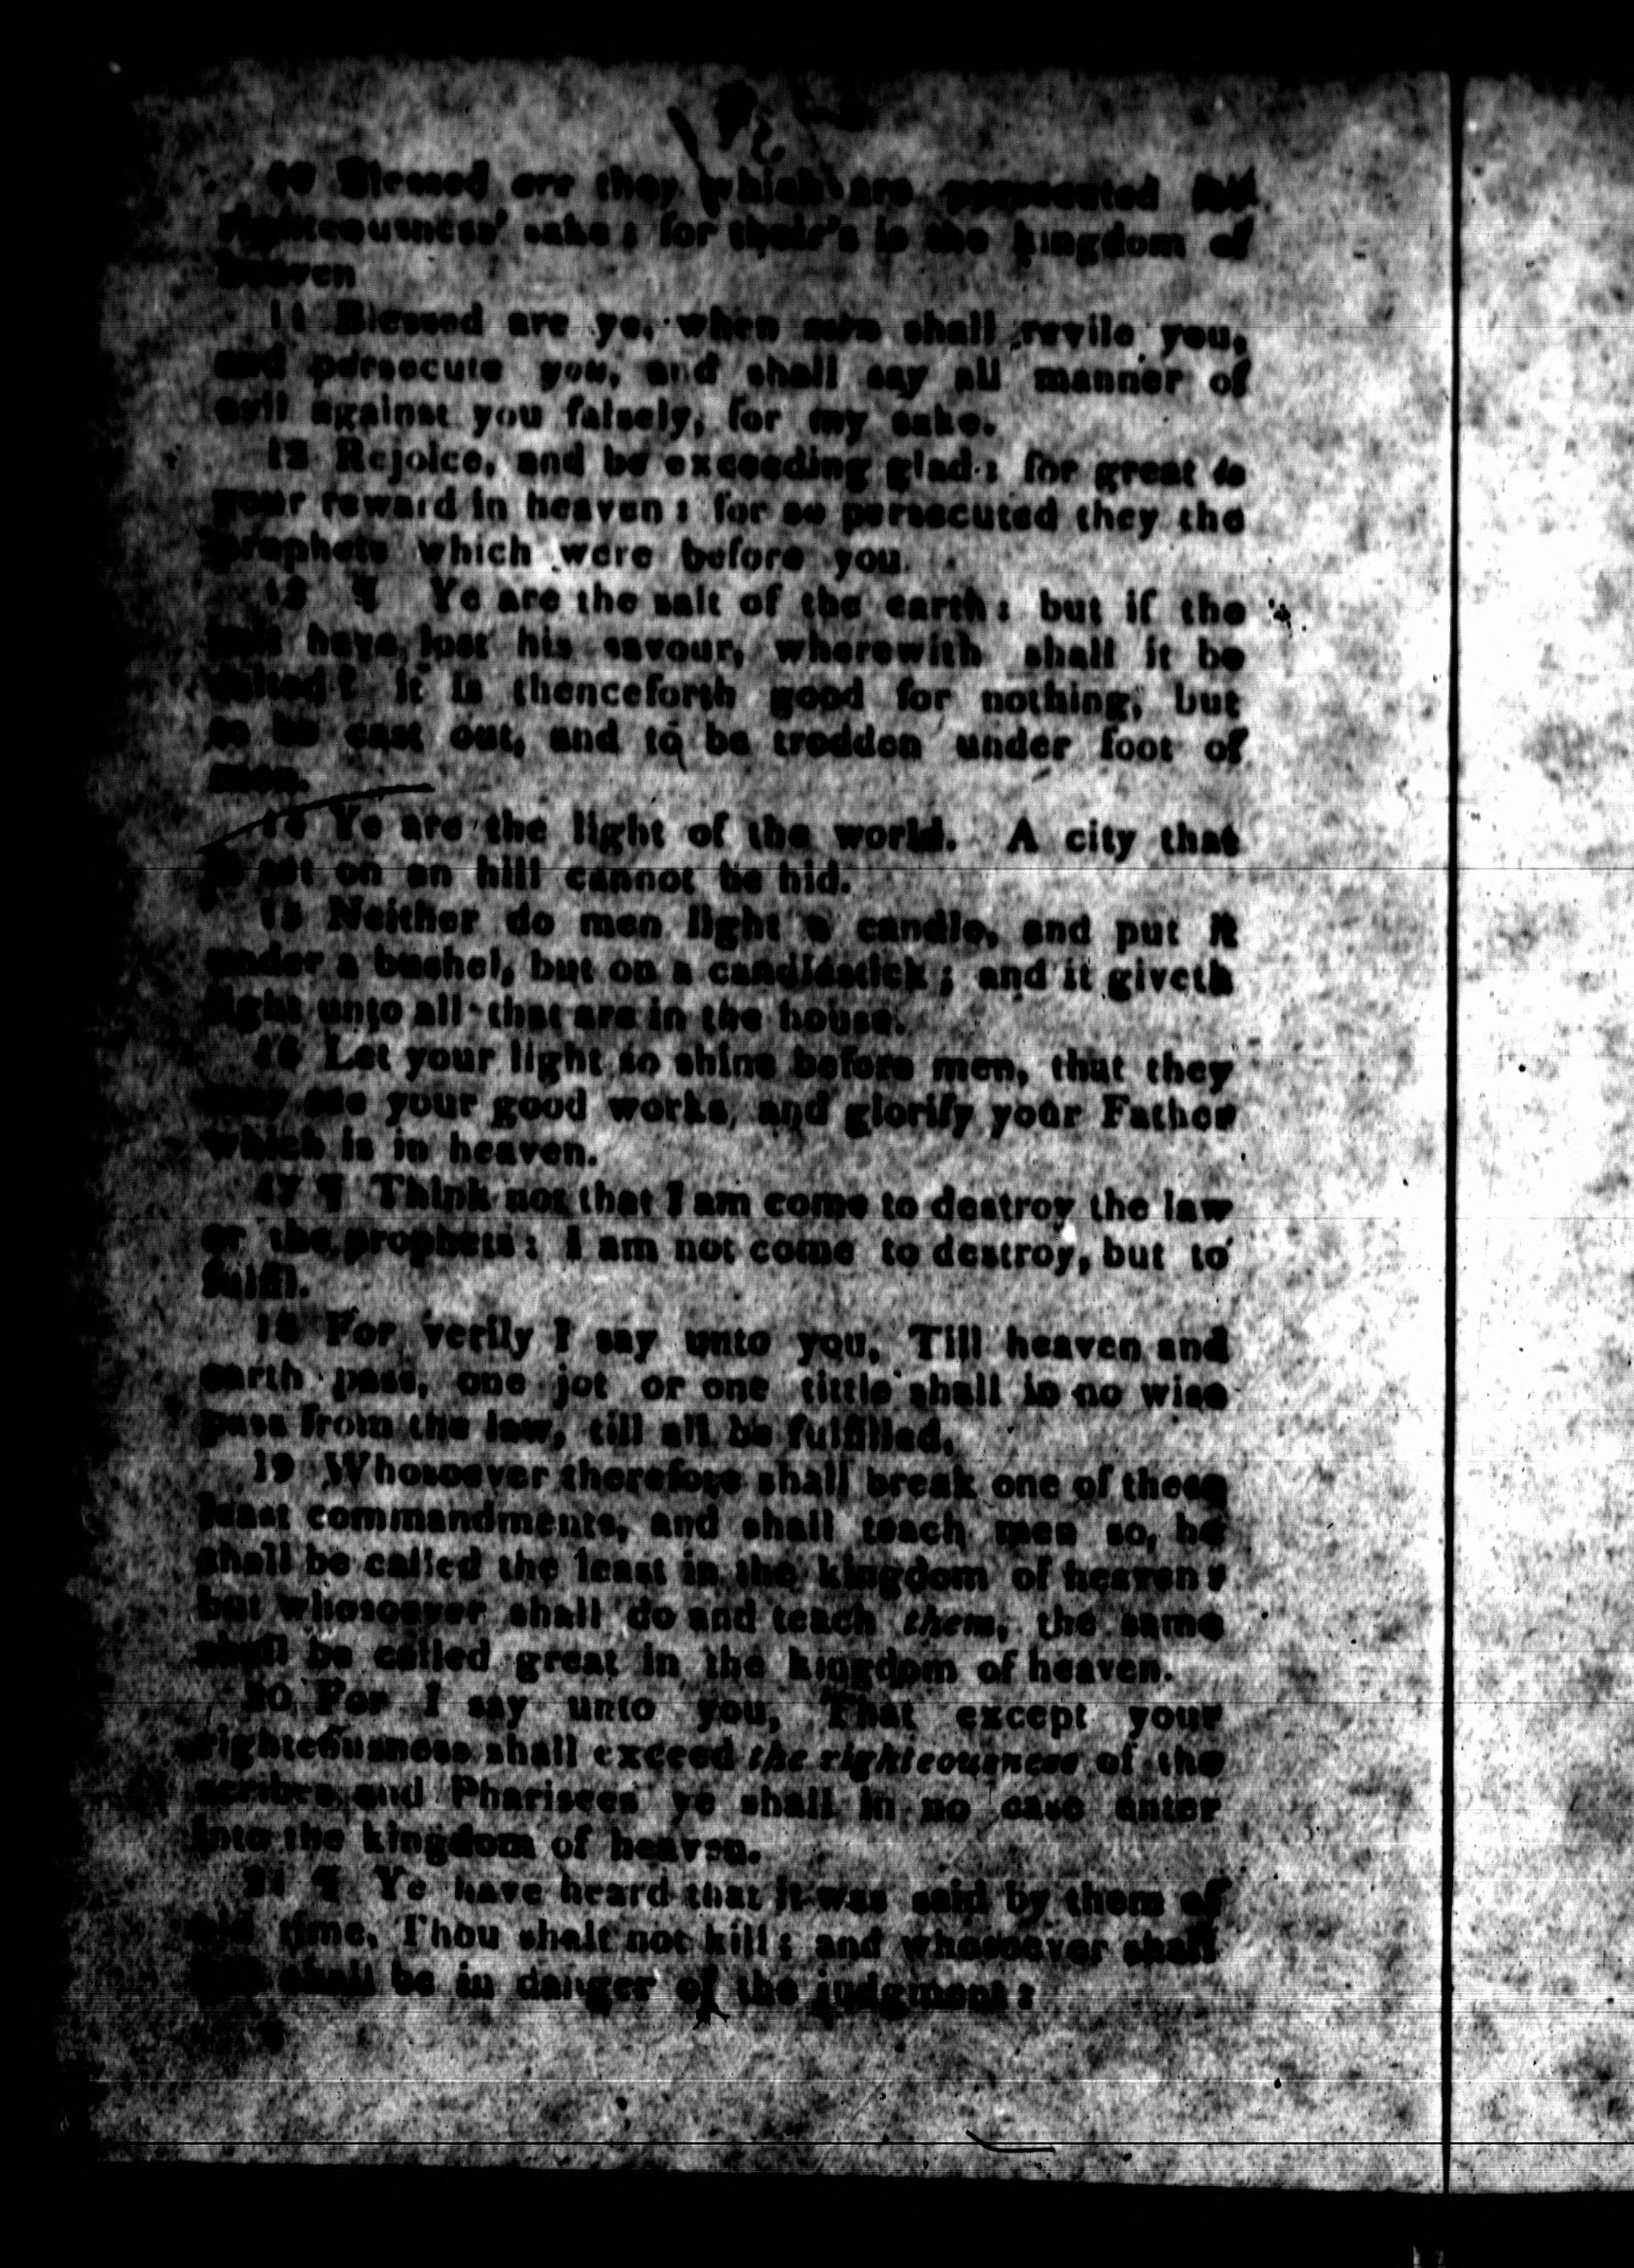 10 Blessed are they which are persecuted for
righteousness' sake: for their's is the kingdom of
heaven
11 Blessed are ye, when men shall revile you,
and persecute you, and shall say all manner of
evil against you falsely, for my sake.
12 Rejoice, and be exceeding glad: for great is
your reward in heaven: for so persecuted they the
prophets which were before you.
13 ¶ Ye are the salt of the earth: but if the
salt have lost his savour, wherewith shall it be
salted? it is thenceforth good for nothing, but
to be cast out, and to be trodden under foot of
men.
14 Ye are the light of the world. A city that
is set on an hill cannot be hid.
15 Neither do men light a candle, and put it
under a bushel, but on a candlestick; and it giveth
light unto all that are in the house.
16 Let your light so shine before men, that they
may see your good works, and glorify your Father
which is in heaven.
17 ¶ Think not that I am come to destroy the law
or the prophets: I am not come to destroy, but to
fulfil.
18 For verily I say unto you, Till heaven and
earth pass, one jot or one tittle shall in no wise
pass from the law, till all be fulfilled.
19 Whosoever therefore shall break one of these
least commandments, and shall teach men so, he
shall be called the least in the kingdom of heaven:
but whosoever shall do and teach them, the same
shall be called great in the kingdom of heaven.
20 For I say unto you, That except your
righteousness shall exceed the righteousness of the
scribes and Pharisees ye shall in no case enter
into the kingdom of heaven.
21 ¶ Ye have heard that it was said by them of
old time, Thou shalt not kill; and whosoever shall
shall be in danger of the judgment: